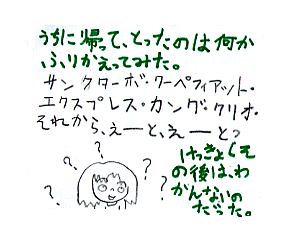 うちに帰って、とったのは何か
ふりかえってみた。
サンクターボ・クーペフィアット・
エクスプレス・カング・クリオ・
それから、えーと、えーと?
けっきょくその
後は、わ
かんないの
だった。
? ? ? ? ? ?